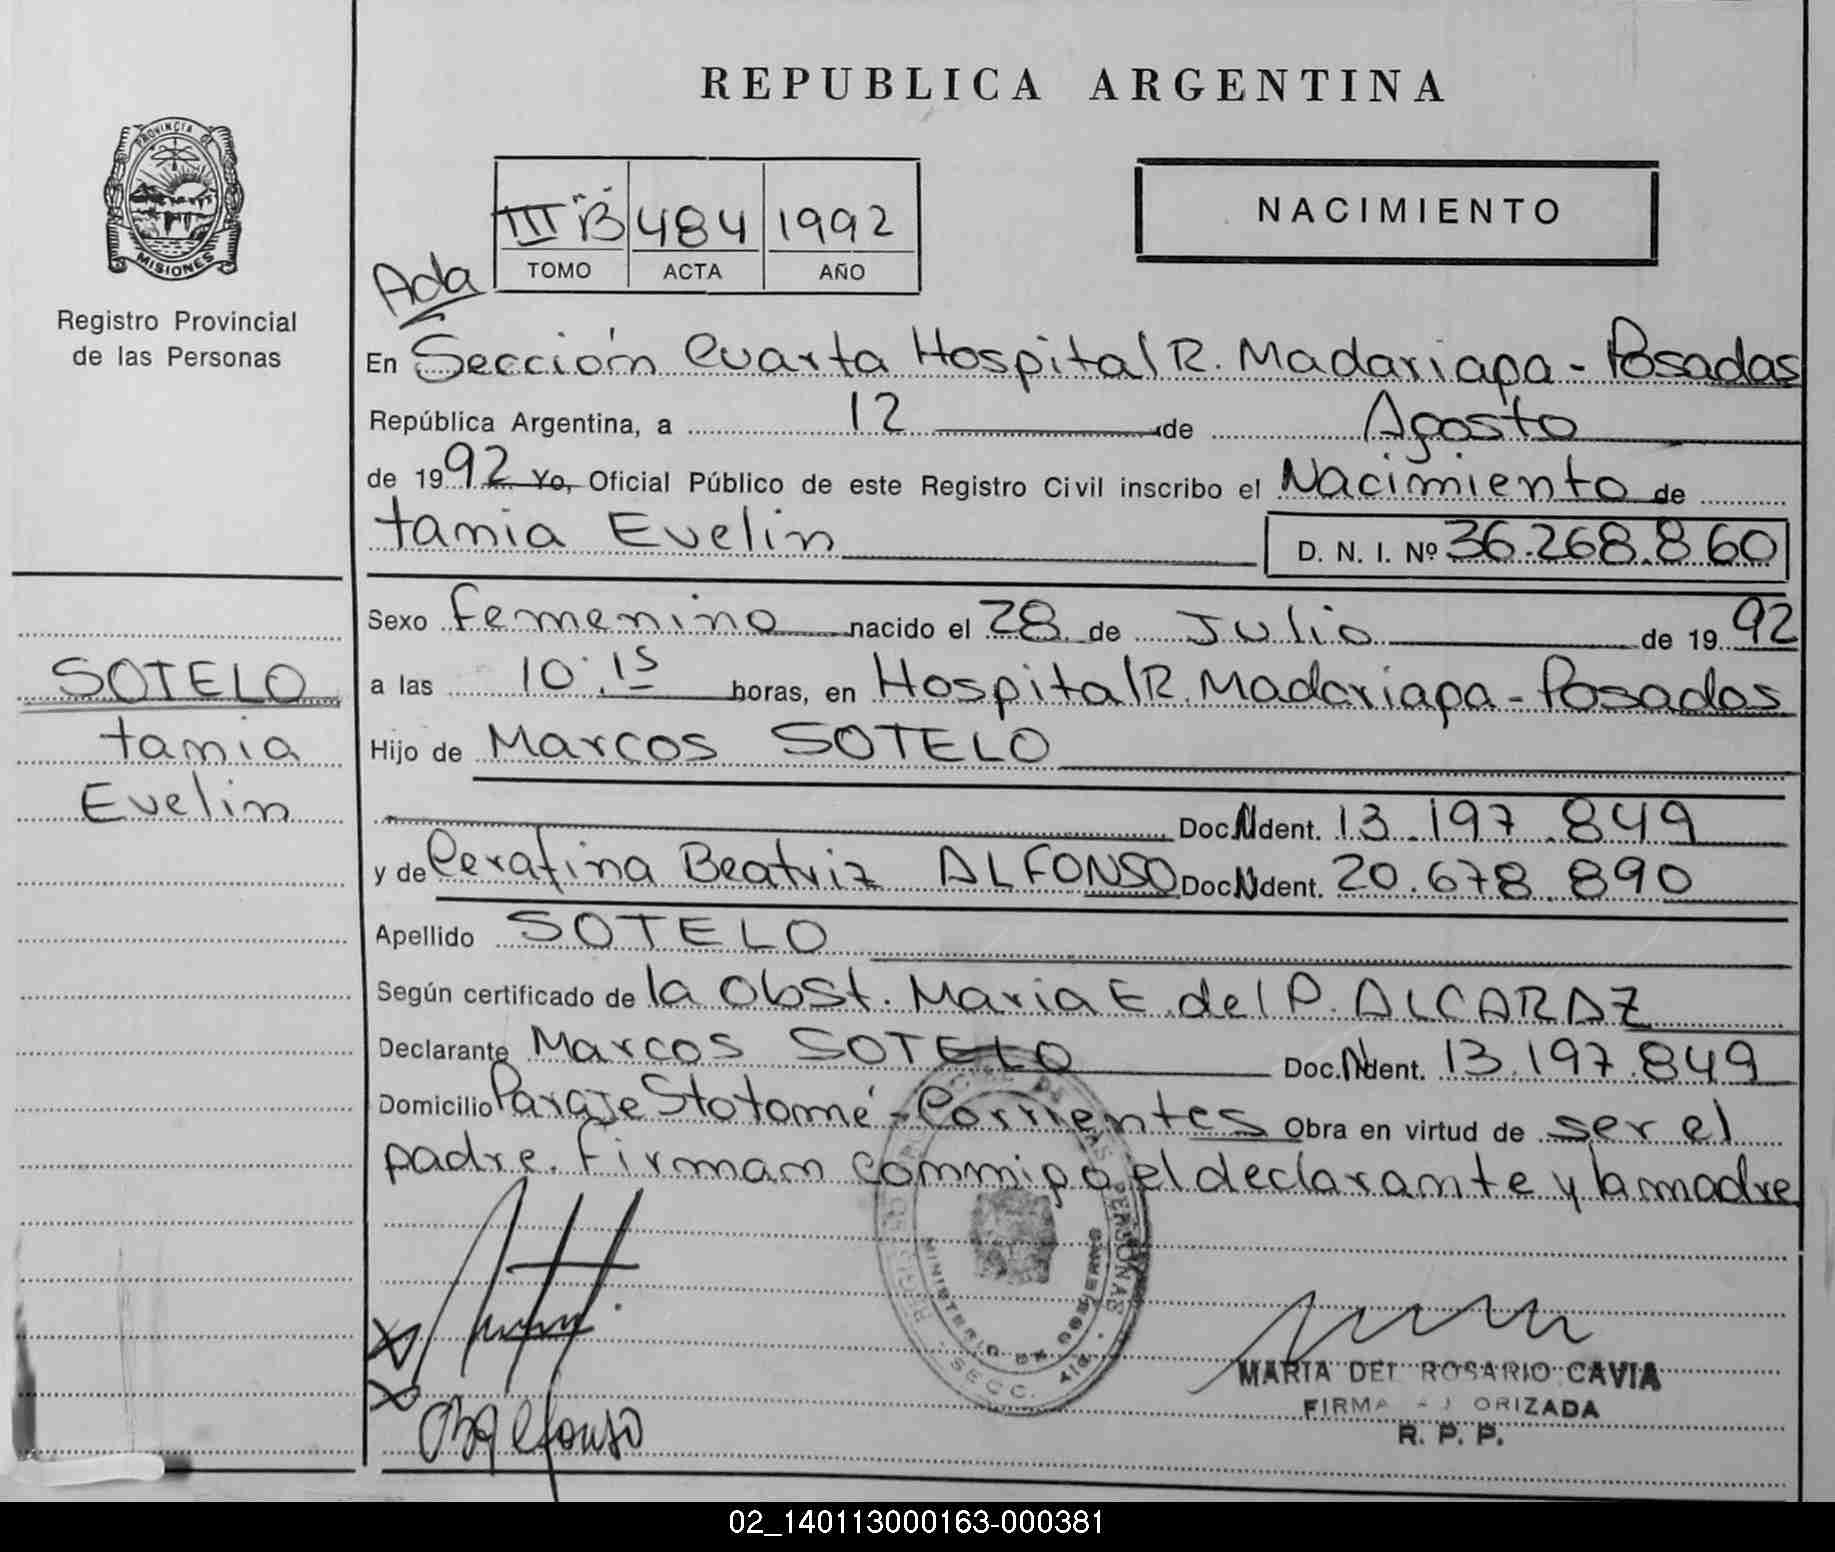 REPUBLICA ARGENTINA
PROVINCIA DE MISIONES
Registro Provincial
de las Personas
NACIMIENTO
III "B" 484 1992
TOMO ACTA AÑO
Ada
En Sección Cuarta Hospital R. Madariaga - Posadas
República Argentina, a 12 de Agosto
de 1992 Yo, Oficial Público de este Registro Civil inscribo el Nacimiento de
tania Evelin D. N. I. Nº 36.268.860
Sexo femenino nacido el 28 de Julio de 1992
a las 10:15 horas, en Hospital R. Madariaga - Posadas
Hijo de Marcos SOTELO
Doc. Ident. 13.197.849
y de Cerafina Beatriz ALFONSO Doc. Ident. 20.678.890
Apellido SOTELO
Según certificado de la Obst. Maria E. del P. ALCARAZ
Declarante Marcos SOTELO Doc. Ident. 13.197.849
Domicilio Paraje Stotomé - Corrientes Obra en virtud de ser el
padre. Firman conmigo el declarante y la madre
SOTELO
tania
Evelin
MINISTERIO DE GOBIERNO
SECC. 4ta
MARIA DEL ROSARIO CAVIA
FIRMA AUTORIZADA
R. P. P.
02_140113000163-000381